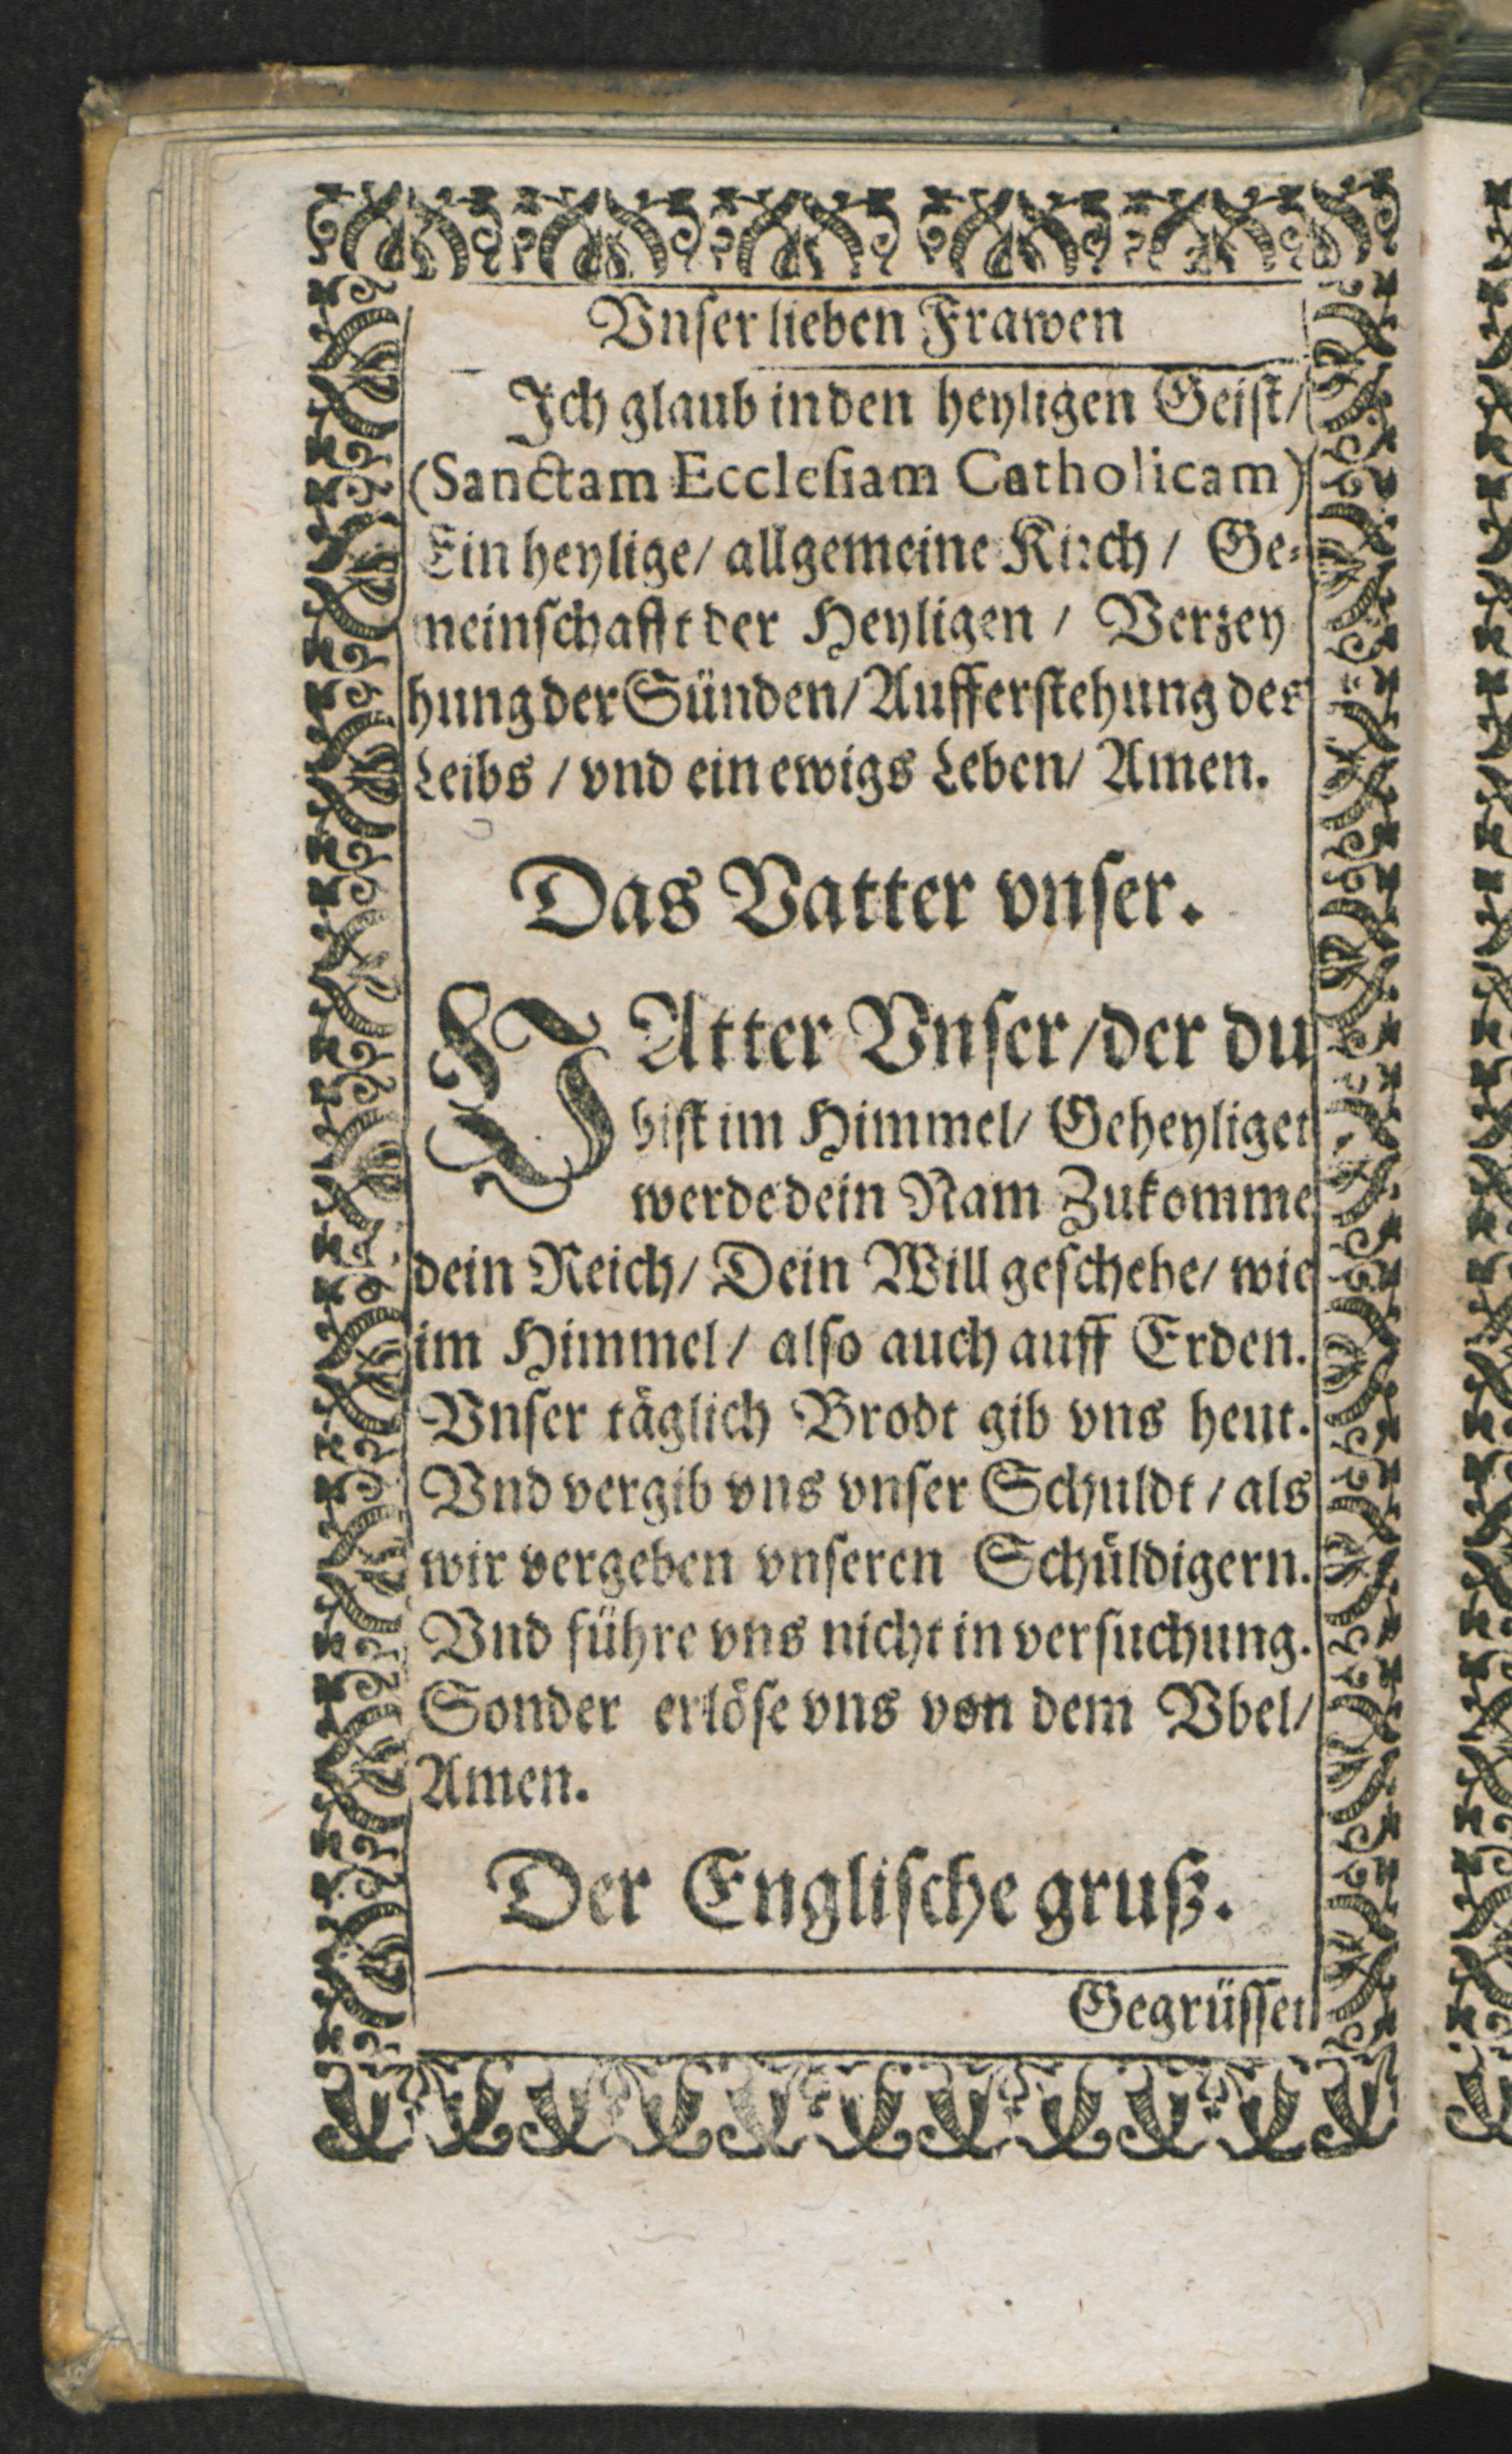 Vnser lieben Frawen
Ich glaub in den heyligen Geist/
(Sanctam Ecclesiam Catholicam)
Ein heylige/ allgemeine Kirch / Ge-
meinschafft der Heyligen / Verzey
hung der Sünden/ Aufferstehung des
Leibs / vnd ein ewigs Leben/ Amen.
Das Vatter vnser.
VAtter Vnser/der du
bist im Himmel/ Geheyliget
werde dein Nam Zukomme
dein Reich/ Dein Will geschehe/ wie
im Himmel/ also auch auff Erden.
Vnser täglich Brodt gib vns heut.
Vnd vergib vns vnser Schuldt / als
wir vergeben vnseren Schüldigern.
Vnd führe vns nicht in versuchung.
Sonder erlöse vns von dem Vbel/
Amen.
Der Englische gruß.
Gegrüsset